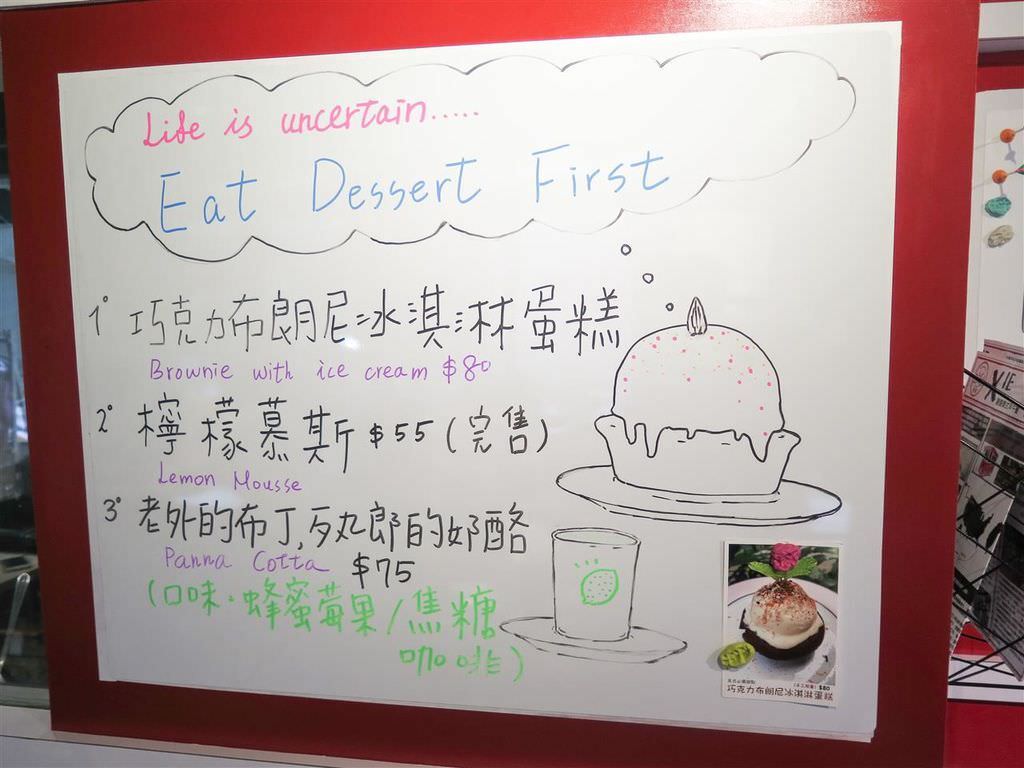 Life is uncertain.....
Eat Dessert First
1° 巧克力布朗尼冰淇淋蛋糕
Brownie with ice cream $80
2° 檸檬慕斯 $55 (完售)
Lemon Mousse
3° 老外的布丁,歹丸郎的奶酪
Panna Cotta $75
(口味·蜂蜜莓果/焦糖
咖啡)
$80
巧克力布朗尼冰淇淋蛋糕